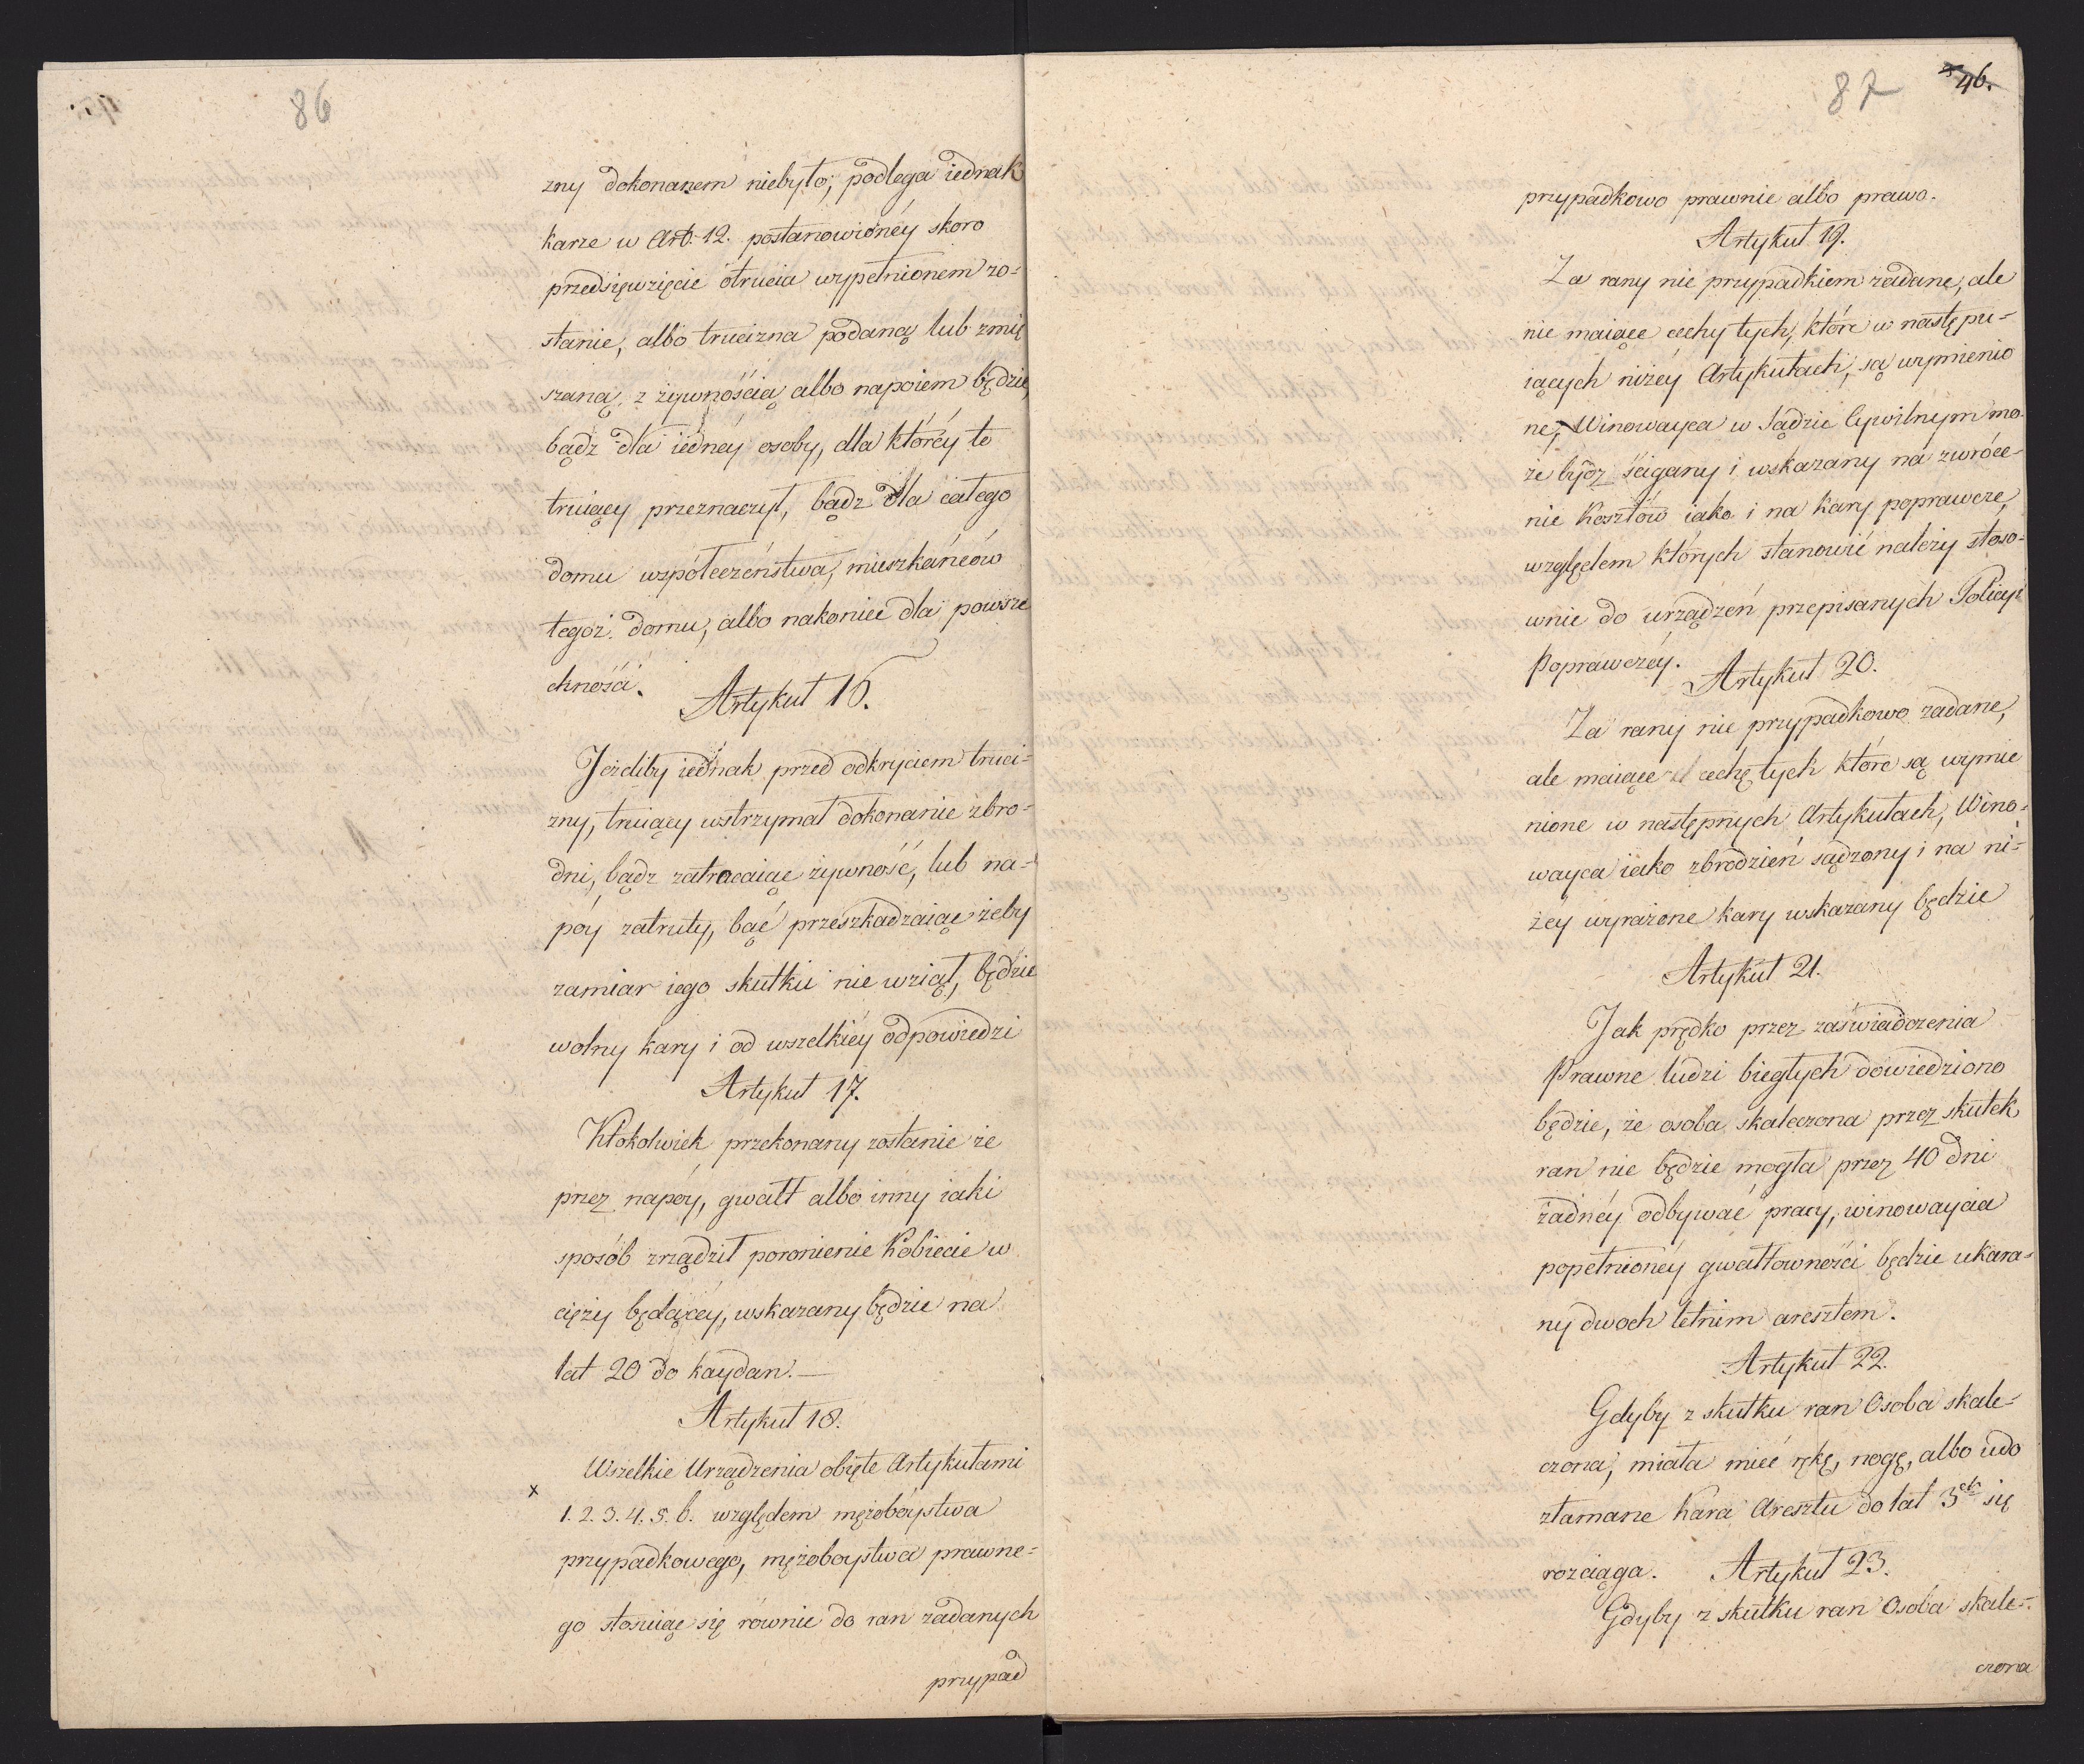 86
zny dokonanem niebyło, podlega iednak
karze w Art. 12. postanowionéy skoro
przedsięwzięcie otrucia wypełnionem zo-
stanie, albo trucizna podaną lub zmię
szaną z żywnością albo napoiem będzie,
bądz dla iednéy osoby, dla któréy te
truiący przeznaczył, bądz dla całego
domu współeczeństwa, mieszkańców
tegoż domu, albo nakoniec dla powsze
chności.
Artykuł 16.
Jeżeliby iednak przed odkryciem truci-
zny, truiący wstrzymał dokonanie zbro-
dni, bądz zatracaiąc żywność, lub na-
póy zatruty, bąć przeszkadzaiąc żeby
zamiar iego skutku nie wziął, będzie
wolny kary i od wszelkiéy odpowiedzi
Artykuł 17.
Ktokolwiek przekonany zostanie że
przez napóy, gwałt albo inny iaki
sposób zrządził poronienie Kobiecie w
cięży będącéy, wskazany będzie na
lat 20 do kaydan.—
Artykuł 18.
Wszelkie Urządzenia obięte Artykułami
x 1. 2. 3. 4. 5. 6. względem mężobóystwa
przypadkowego, mężoboystwa prawne-
go stosuiąc się równie do ran zadanych
przypad
87 46.
przypadkowo prawnie albo prawo.
Artykuł 19.
Za rany nie przypadkiem zadane, ale
nie maiące cechy tych, które w następu-
iących niżéy Artykułach, są wymienio
ne, Winowayca w Sądzie Cywilnym mo-
że bydz ścigany i wskazany na zwróce-
nie Kosztów iako i na kary poprawcze,
względem których stanowić należy stoso-
wnie do urządzeń przepisanych Policyi
Poprawczéy.
Artykuł 20.
Za rany nie przypadkowo zadane,
ale maiące cechę tych które są wymie
nione w następnych Artykułach, Wino-
wayca iako zbrodzień sądzony i na ni-
żéy wyrażone kary wskazany będzie
Artykuł 21.
Jak prędko przez zaświadczenia
Prawne ludzi biegłych dowiedziono
będzie, że osoba skaleczona przez skutek
ran nie będzie mogła przez 40 dni
żadnéy odbywać pracy, winowaycia
popełnionéy gwałtowności będzie ukara-
ny dwoch letnim aresztem.
Artykuł 22.
Gdyby z skutku ran Osoba skale-
czona, miała mieć rękę, nogę, albo udo
złamane Kara Aresztu do lat 3ch się
rozciąga. Artykuł 23.
Gdyby z skutku ran Osoba skale-
czona